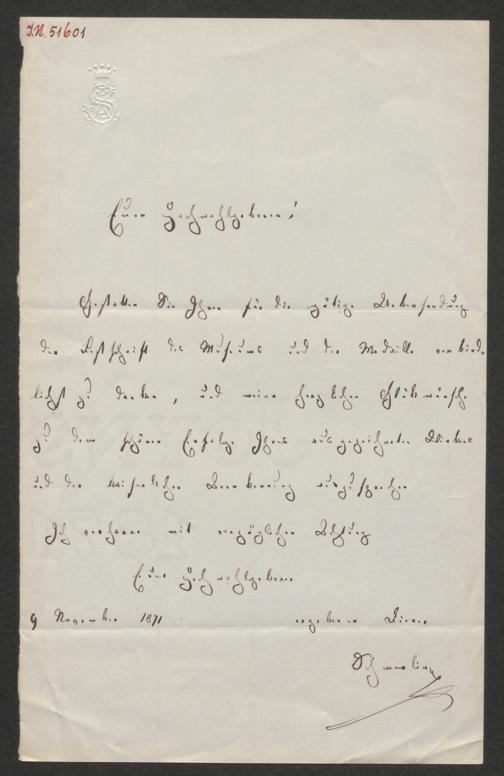 I.N. 51601
Euer Hochwohlgeboren!
Gestatten Sie Ihnen für die gütige Übersendung
der Festschrift des Museums und der Medaille verbind-
lichst zu danken, und meine herzlichen Glückwünsche
zu dem schönen Erfolge Ihres ausgezeichneten Wirkens
und der kaiserlichen Anerkennung auszusprechen
Ich verharre mit vorzüglicher Achtung
Euer Hochwohlgeboren
9 November 1871 ergebener Diener
Schmerling